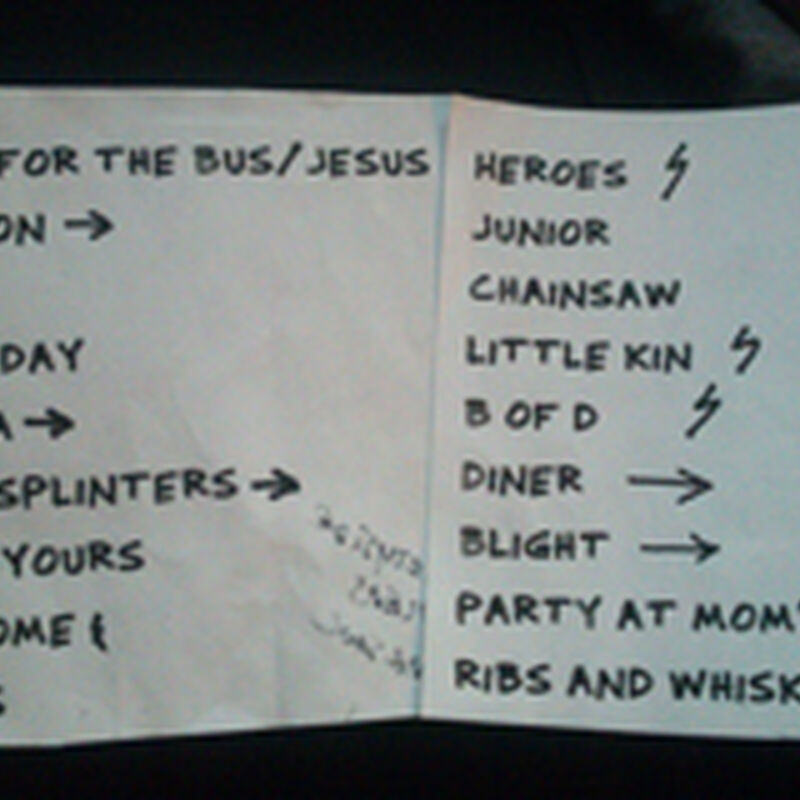 FOR THE BUS/JESUS
ON →
DAY
A →
SPLINTERS →
YOURS
OME &
S
HEROES
JUNIOR
CHAINSAW
LITTLE KIN
B OF D
DINER →
BLIGHT →
PARTY AT MOM'
RIBS AND WHISK